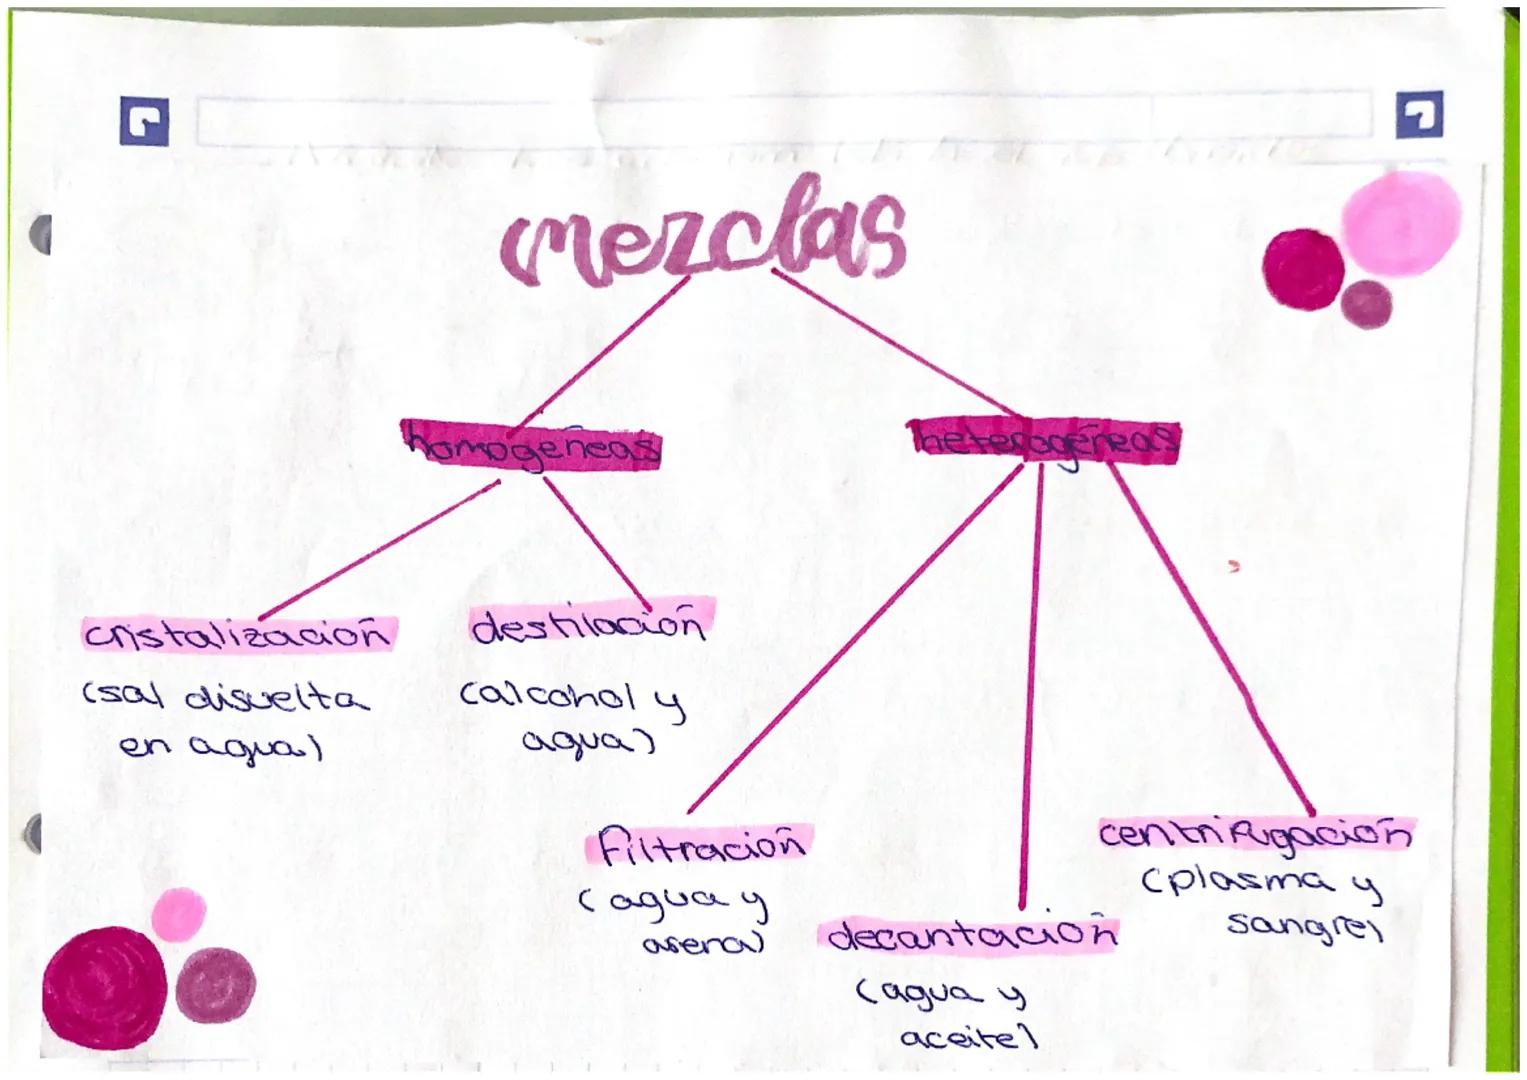 mezclas
homogéneas
heterogéneas
cristalización
(sal disuelta
en agua)
destilación
(alcohol y
agua)
filtración
(agua y
arena)
decantación
(agua y
aceite)
centrifugación
(plasma y
sangre)